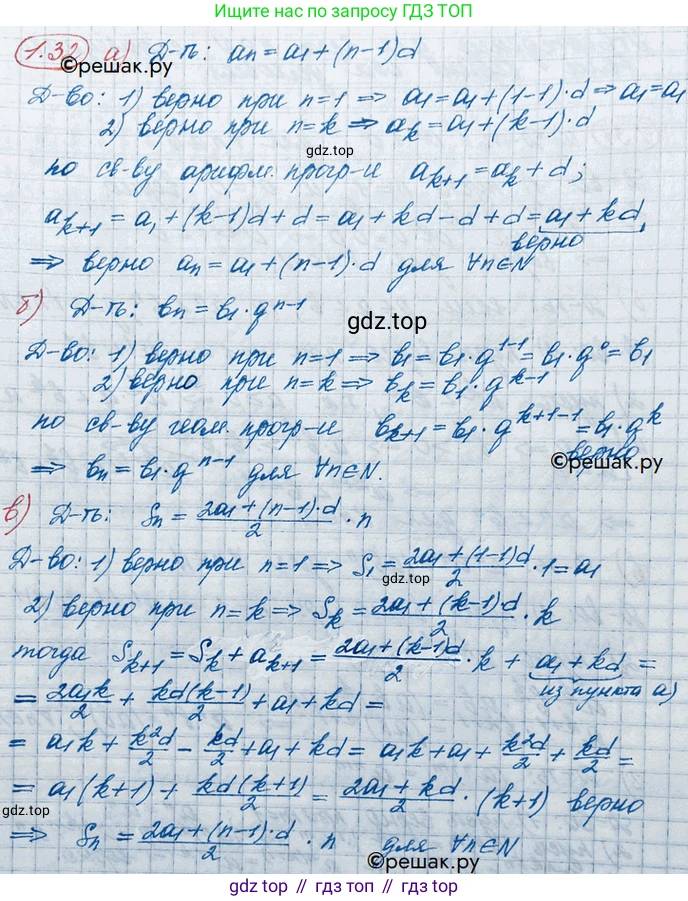 Ищите нас по запросу ГДЗ ТОП
1.32 а) Д-ть: an = a1 + (n-1)d
©решак.ру
Д-во: 1) верно при n=1 => a1 = a1 + (1-1)·d => a1 = a1
2) верно при n=k => ak = a1 + (k-1)·d
gdz.top
по св-ву арифм. прогр-и ak+1 = ak + d;
ak+1 = a1 + (k-1)d + d = a1 + kd - d + d = a1 + kd,
верно
=> верно an = a1 + (n-1)·d для ∀n∈N
б) Д-ть: bn = b1·q^n-1
gdz.top
Д-во: 1) верно при n=1 => b1 = b1·q^1-1 = b1·q^0 = b1
2) верно при n=k => bk = b1·q^k-1
по св-ву геом. прогр-и bk+1 = b1·q^k+1-1 = b1·q^k
верно
=> bn = b1·q^n-1 для ∀n∈N.
©решак.ру
в) Д-ть: Sn = 2a1 + (n-1)·d / 2 · n
Д-во: 1) верно при n=1 => S1 = 2a1 + (1-1)d / 2 · 1 = a1
gdz.top
2) верно при n=k => Sk = 2a1 + (k-1)·d / 2 · k
тогда Sk+1 = Sk + ak+1 = 2a1 + (k-1)d / 2 · k + a1 + kd =
из пункта а)
= 2a1k / 2 + kd(k-1) / 2 + a1 + kd =
= a1k + k²d / 2 - kd / 2 + a1 + kd = a1k + a1 + k²d / 2 + kd / 2 =
= a1(k+1) + kd(k+1) / 2 = 2a1 + kd / 2 · (k+1) верно
gdz.top
=> Sn = 2a1 + (n-1)·d / 2 · n для ∀n∈N
©решак.ру
gdz top // гдз топ // gdz.top